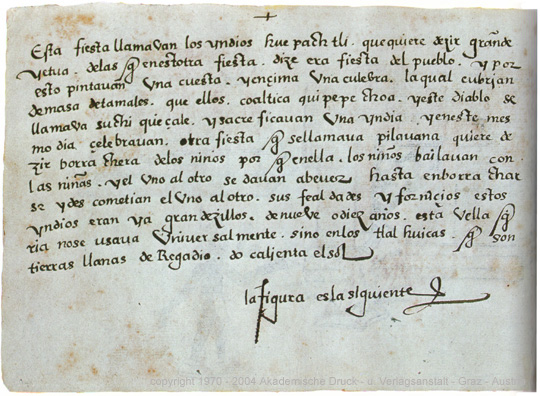 Esta fiesta llamavan los yndios hue pach tli. que quiere dezir grande
yetua. delas q̃ enestotra fiesta. dize era fiesta del pueblo. y por
esto pintavan una cuesta. yençima una culebra. la qual cubrian
demasa detamales. que ellos. coaltica qui pepechoa. y este diablo se
llamava suchi queçale. ysacreficavan una yndia. yeneste mes
mo dia çelebravan. otra fiesta q̃ sellamava pilavana quiere de
zir borrachera delos niños por q̃ enella. los niños bailavan con
las niñas. yel uno al otro se davan abever hasta enborrachar
se y des cometian el uno al otro. sus feal dades y fornicios estos
yndios eran ya grandezillos. de nueve o diez años. esta vella q̃
ria nose usava universalmente. sino enlos tlalhuicas. q̃ son
tierras llanas de Regadio. do calienta elsol
la figura es la siguiente
copyright 1970 - 2004 Akademische Druck - u. Verlagsanstalt - Graz - Aust